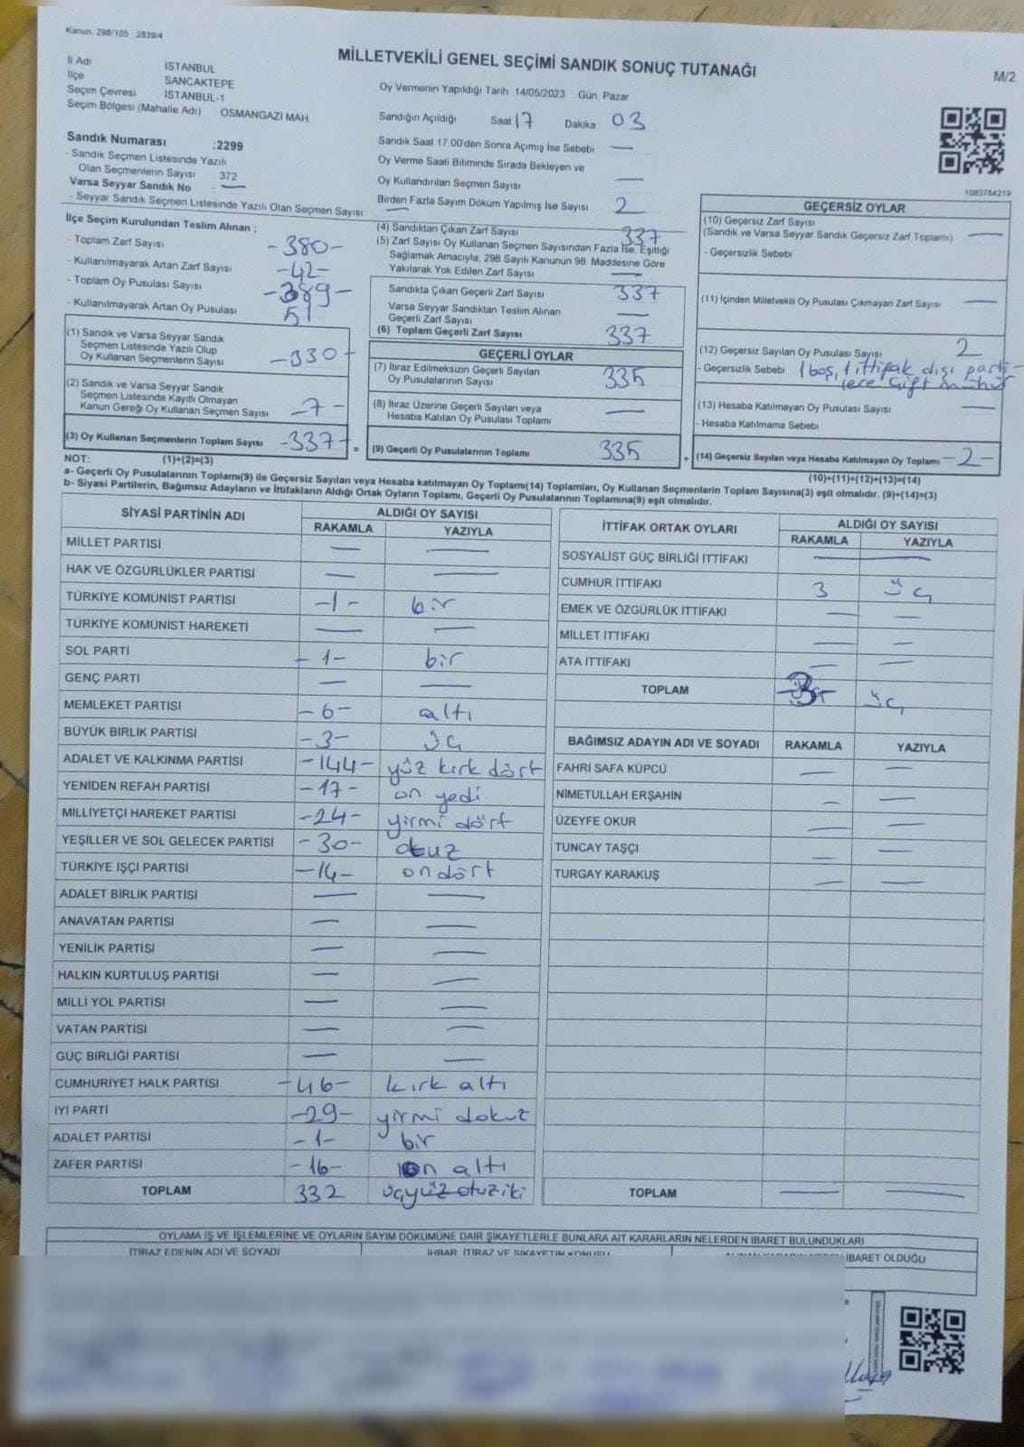 Kanun. 298/105 2839/4
MİLLETVEKİLİ GENEL SEÇİMİ SANDIK SONUÇ TUTANAĞI
M/2
İl Adı İSTANBUL
İlçe SANCAKTEPE
Seçim Çevresi İSTANBUL-1
Seçim Bölgesi (Mahalle Adı) OSMANGAZİ MAH
Oy Vermenin Yapıldığı Tarih 14/05/2023 Gün Pazar
Sandığın Açıldığı Saat 17 Dakika 03
Sandık Saat 17.00'den Sonra Açımış İse Sebebi —
Oy Verme Saati Bitiminde Sırada Bekleyen ve
Oy Kullandırılan Seçmen Sayısı —
Birden Fazla Sayım Döküm Yapılmış İse Sayısı 2
Sandık Numarası :2299
- Sandık Seçmen Listesinde Yazılı
Olan Seçmenlerin Sayısı 372
Varsa Seyyar Sandık No : —
- Seyyar Sandık Seçmen Listesinde Yazılı Olan Seçmen Sayısı —
1083764219
İlçe Seçim Kurulundan Teslim Alınan ;
- Toplam Zarf Sayısı -380-
- Kullanılmayarak Artan Zarf Sayısı -42-
- Toplam Oy Pusulası Sayısı -389-
- Kullanılmayarak Artan Oy Pusulası 51
(1) Sandık ve Varsa Seyyar Sandık
Seçmen Listesinde Yazılı Olup
Oy Kullanan Seçmenlerin Sayısı -330-
(2) Sandık ve Varsa Seyyar Sandık
Seçmen Listesinde Kayıtlı Olmayan
Kanun Gereği Oy Kullanan Seçmen Sayısı -7-
(3) Oy Kullanan Seçmenlerin Toplam Sayısı -337-
(4) Sandıktan Çıkan Zarf Sayısı 337
(5) Zarf Sayısı Oy Kullanan Seçmen Sayısından Fazla İse, Eşitliği
Sağlamak Amacıyla, 298 Sayılı Kanunun 98. Maddesine Göre
Yakılarak Yok Edilen Zarf Sayısı —
Sandıkta Çıkan Geçerli Zarf Sayısı 337
Varsa Seyyar Sandıktan Teslim Alınan
Geçerli Zarf Sayısı —
(6) Toplam Geçerli Zarf Sayısı 337
GEÇERLİ OYLAR
(7) İtiraz Edilmeksizin Geçerli Sayılan
Oy Pusulalarının Sayısı 335
(8) İtiraz Üzerine Geçerli Sayılan veya
Hesaba Katılan Oy Pusulası Toplamı —
= (9) Geçerli Oy Pusulalarının Toplamı 335
GEÇERSİZ OYLAR
(10) Geçersiz Zarf Sayısı
(Sandık ve Varsa Seyyar Sandık Geçersiz Zarf Toplamı) —
- Geçersizlik Sebebi
(11) İçinden Milletvekili Oy Pusulası Çıkmayan Zarf Sayısı —
(12) Geçersiz Sayılan Oy Pusulası Sayısı 2
- Geçersizlik Sebebi 1 boş, 1 ittifak dışı parti-
lere çift mühür
(13) Hesaba Katılmayan Oy Pusulası Sayısı —
- Hesaba Katılmama Sebebi
+ (14) Geçersiz Sayılan veya Hesaba Katılmayan Oy Toplamı -2-
NOT: (1)+(2)=(3) (10)+(11)+(12)+(13)=(14)
a- Geçerli Oy Pusulalarının Toplamı(9) ile Geçersiz Sayılan veya Hesaba katılmayan Oy Toplamı(14) Toplamları, Oy Kullanan Seçmenlerin Toplam Sayısına(3) eşit olmalıdır. (9)+(14)=(3)
b- Siyasi Partilerin, Bağımsız Adayların ve İttifakların Aldığı Ortak Oyların Toplamı, Geçerli Oy Pusulalarının Toplamına(9) eşit olmalıdır.
SİYASİ PARTİNİN ADI ALDIĞI OY SAYISI
RAKAMLA YAZIYLA
MİLLET PARTİSİ — —
HAK VE ÖZGÜRLÜKLER PARTİSİ — —
TÜRKİYE KOMÜNİST PARTİSİ -1- bir
TÜRKİYE KOMÜNİST HAREKETİ — —
SOL PARTİ -1- bir
GENÇ PARTİ — —
MEMLEKET PARTİSİ -6- altı
BÜYÜK BİRLİK PARTİSİ -3- üç
ADALET VE KALKINMA PARTİSİ -144- yüz kırk dört
YENİDEN REFAH PARTİSİ -17- on yedi
MİLLİYETÇİ HAREKET PARTİSİ -24- yirmi dört
YEŞİLLER VE SOL GELECEK PARTİSİ -30- otuz
TÜRKİYE İŞÇİ PARTİSİ -14- on dört
ADALET BİRLİK PARTİSİ — —
ANAVATAN PARTİSİ — —
YENİLİK PARTİSİ — —
HALKIN KURTULUŞ PARTİSİ — —
MİLLİ YOL PARTİSİ — —
VATAN PARTİSİ — —
GÜÇ BİRLİĞİ PARTİSİ — —
CUMHURİYET HALK PARTİSİ -46- kırk altı
İYİ PARTİ -29- yirmi dokuz
ADALET PARTİSİ -1- bir
ZAFER PARTİSİ -16- on altı
TOPLAM 332 üçyüz otuz iki
İTTİFAK ORTAK OYLARI ALDIĞI OY SAYISI
RAKAMLA YAZIYLA
SOSYALİST GÜÇ BİRLİĞİ İTTİFAKI —
CUMHUR İTTİFAKI 3 üç
EMEK VE ÖZGÜRLÜK İTTİFAKI — —
MİLLET İTTİFAKI — —
ATA İTTİFAKI — —
TOPLAM 3 üç
BAĞIMSIZ ADAYIN ADI VE SOYADI RAKAMLA YAZIYLA
FAHRİ SAFA KÜPCÜ — —
NİMETULLAH ERŞAHİN — —
ÜZEYFE OKUR — —
TUNCAY TAŞÇI — —
TURGAY KARAKUŞ — —
TOPLAM — —
OYLAMA İŞ VE İŞLEMLERİNE VE OYLARIN SAYIM DÖKÜMÜNE DAİR ŞİKAYETLERLE BUNLARA AİT KARARLARIN NELERDEN İBARET BULUNDUKLARI
İTİRAZ EDENİN ADI VE SOYADI İHBAR, İTİRAZ VE ŞİKAYETİN KONUSU İBARET OLDUĞU